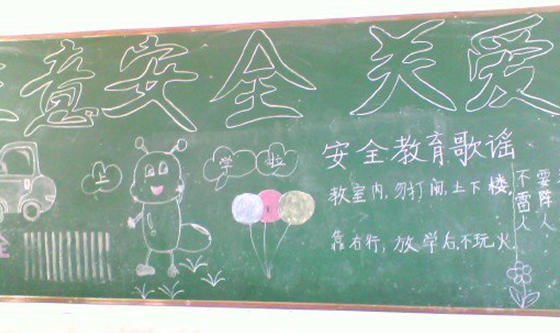 意安全 关爱
上学啦
全
安全教育歌谣
教室内,勿打闹,上下楼,
靠右行,放学后,不玩火